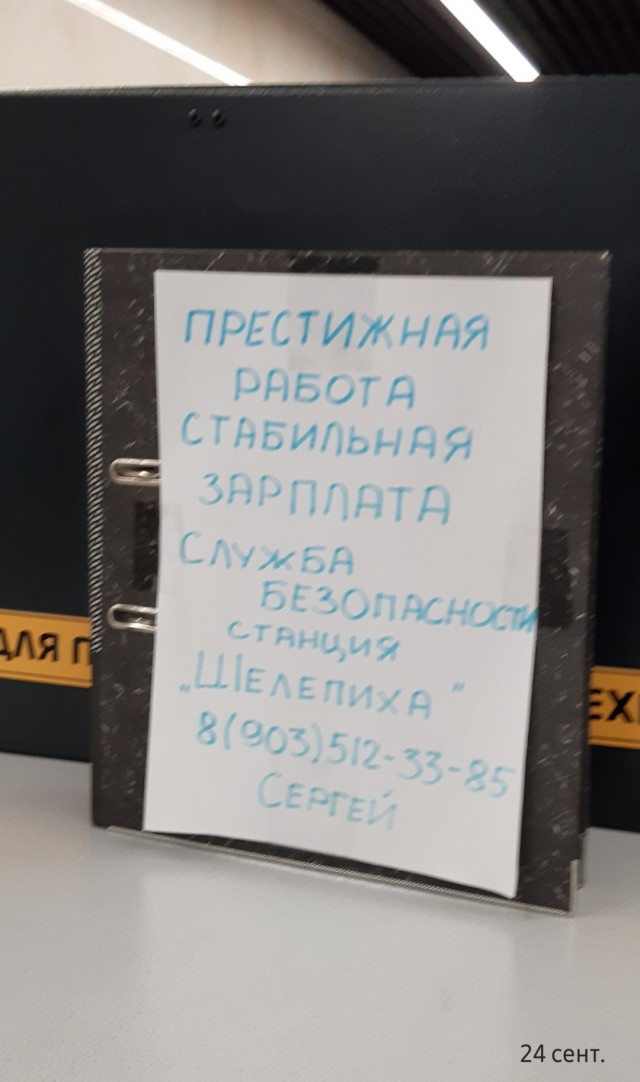 ПРЕСТИЖНАЯ
РАБОТА
СТАБИЛЬНАЯ
ЗАРПЛАТА
СЛУЖБА
БЕЗОПАСНОСТИ
СТАНЦИЯ
„ШЕЛЕПИХА"
8(903)512-33-85
СЕРГЕЙ
ДЛЯ П
ЕХ
24 сент.